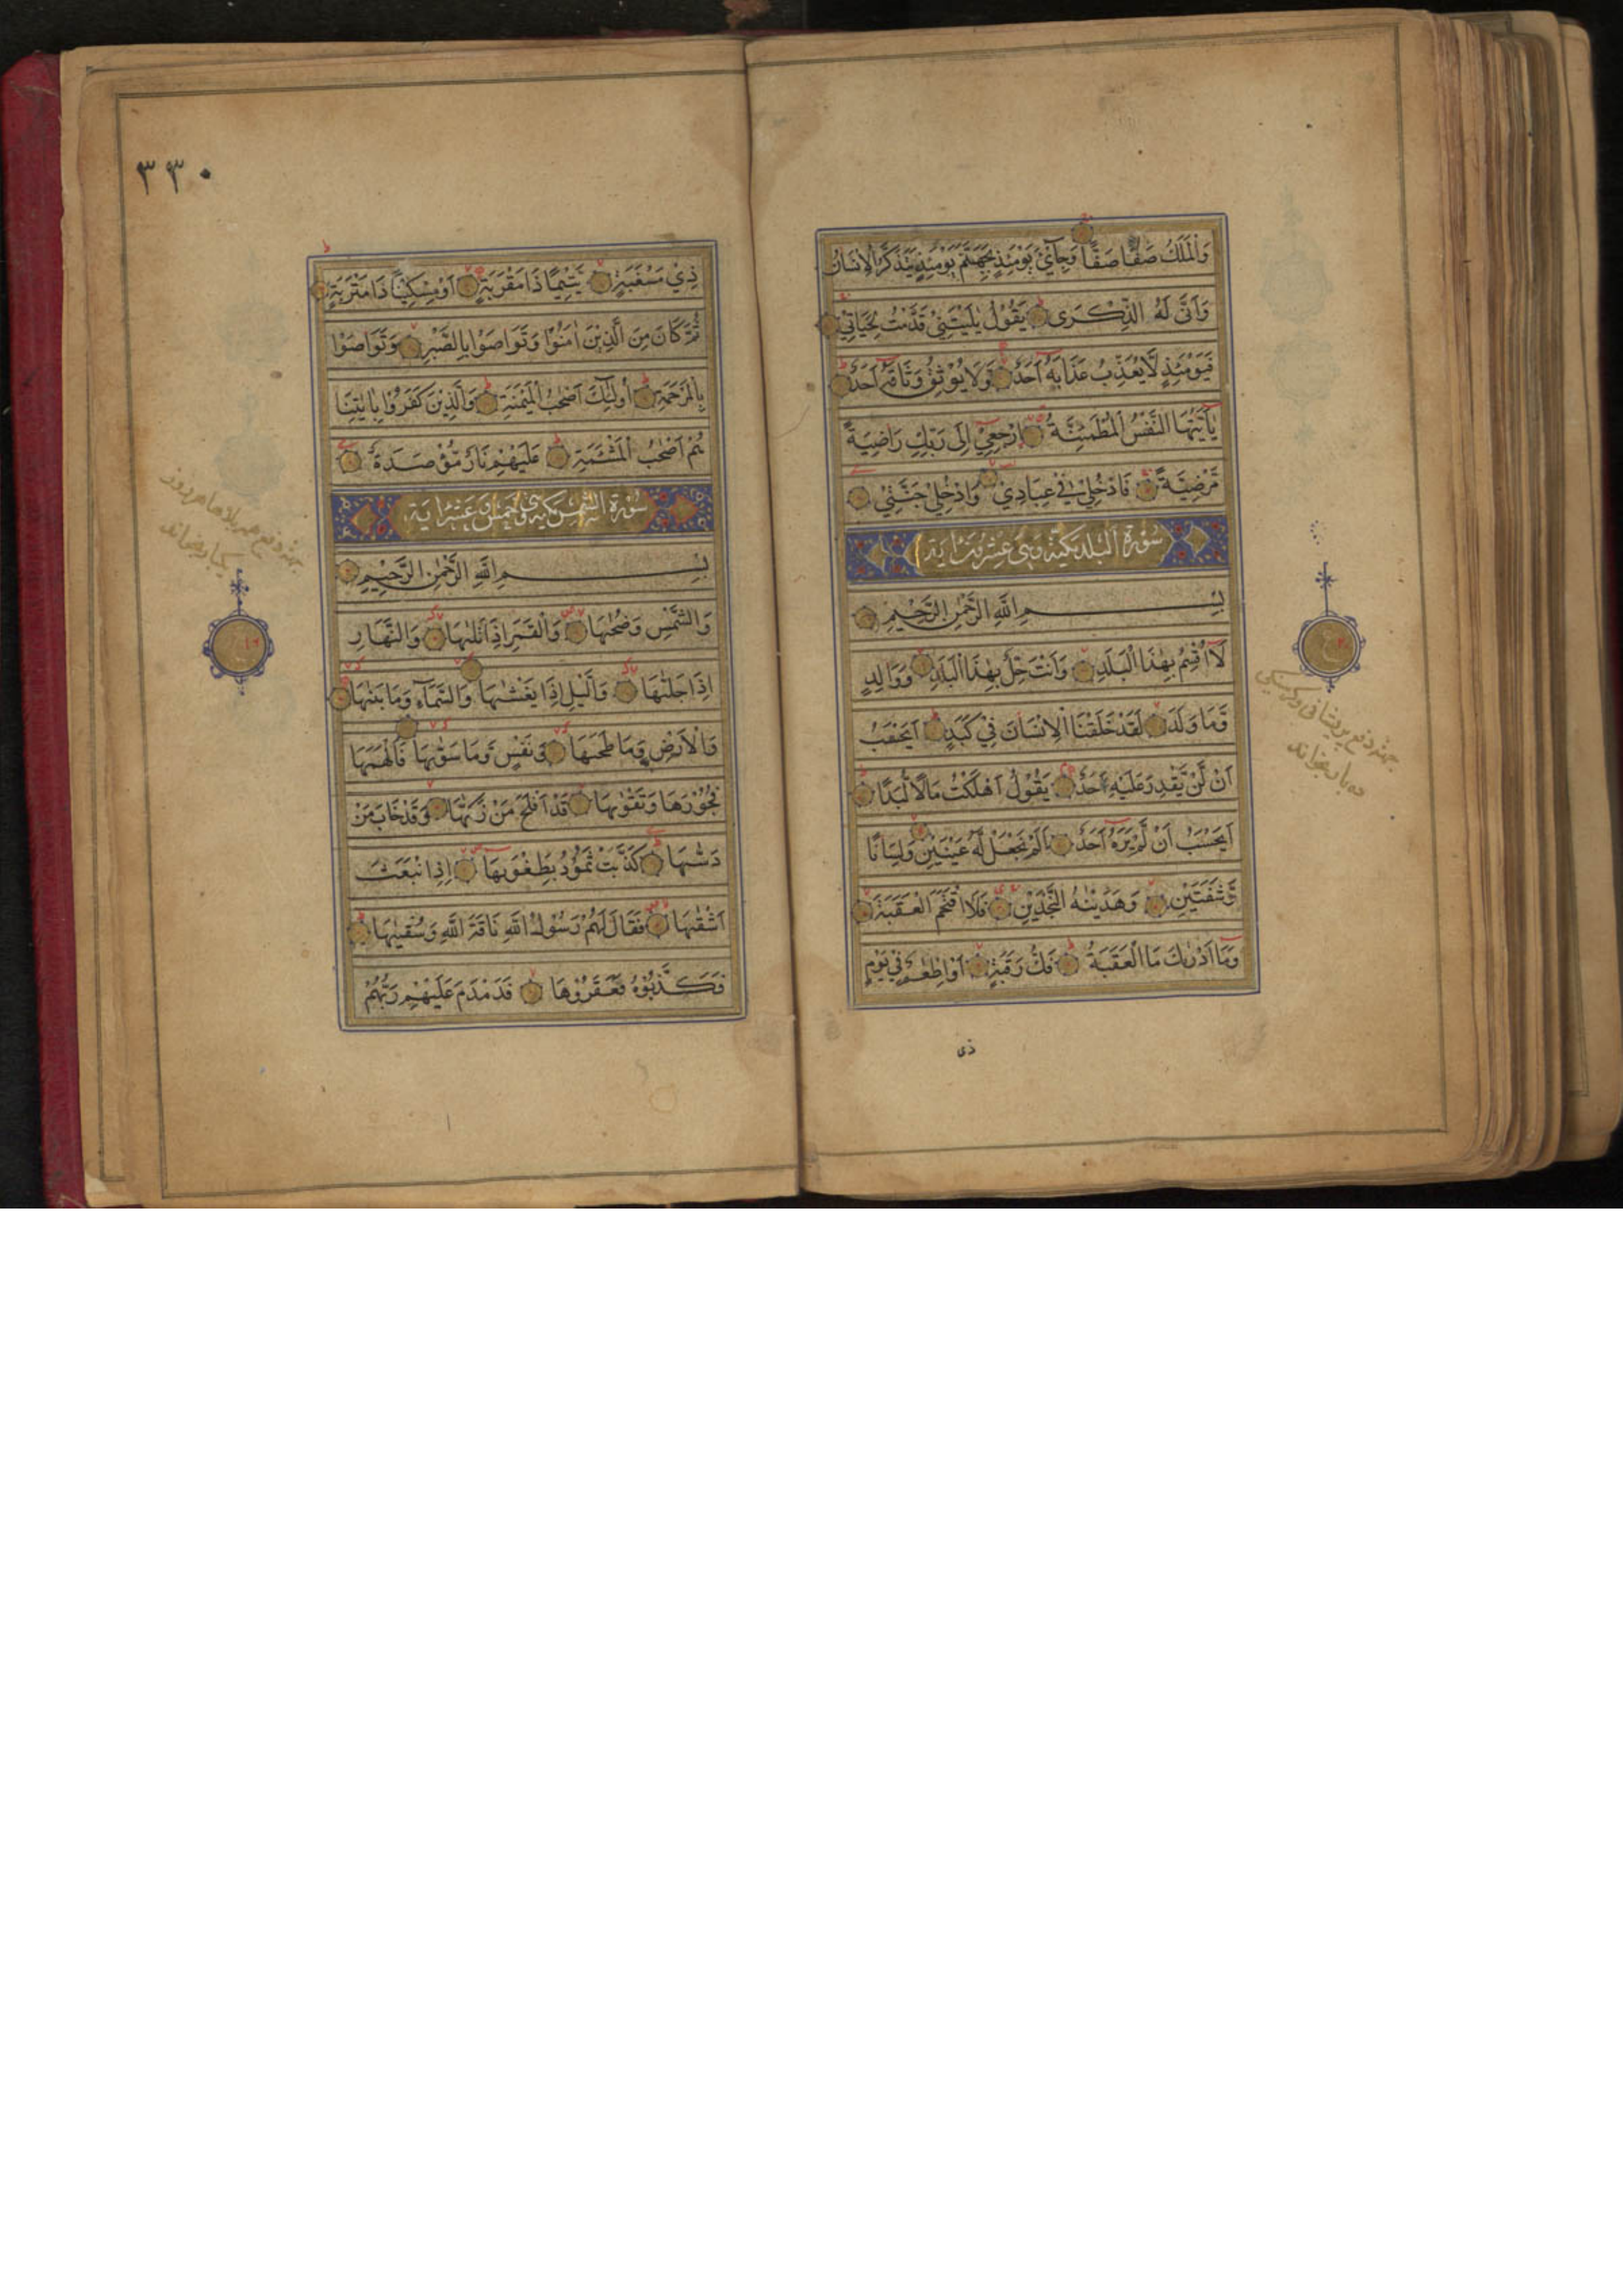 وَالْمَلَكُ صَفًّا صَفًّا وَجِایْٓءَ يَوْمَئِذٍ بِجَهَنَّمَ يَوْمَئِذٍ يَتَذَكَّرُ الْاِنْسَانُ
وَاَنّٰى لَهُ الذِّكْرٰى يَقُوْلُ يٰلَيْتَنِيْ قَدَّمْتُ لِحَيَاتِيْ
فَيَوْمَئِذٍ لَّا يُعَذِّبُ عَذَابَهٗٓ اَحَدٌ وَلَا يُوْثِقُ وَثَاقَهٗٓ اَحَدٌ
يٰٓاَيَّتُهَا النَّفْسُ الْمُطْمَئِنَّةُ ارْجِعِيْٓ اِلٰى رَبِّكِ رَاضِيَةً
مَّرْضِيَّةً فَادْخُلِيْ فِيْ عِبَادِيْ وَادْخُلِيْ جَنَّتِيْ
سُوْرَةُ الْبَلَدِ مَكِّيَّةٌ وَهِيَ عِشْرُوْنَ اٰيَة
بِسْمِ اللّٰهِ الرَّحْمٰنِ الرَّحِيْمِ
لَآ اُقْسِمُ بِهٰذَا الْبَلَدِ وَاَنْتَ حِلٌّۢ بِهٰذَا الْبَلَدِ وَوَالِدٍ
وَّمَا وَلَدَ لَقَدْ خَلَقْنَا الْاِنْسَانَ فِيْ كَبَدٍ اَيَحْسَبُ
اَنْ لَّنْ يَّقْدِرَ عَلَيْهِ اَحَدٌ يَقُوْلُ اَهْلَكْتُ مَالًا لُّبَدًا
اَيَحْسَبُ اَنْ لَّمْ يَرَهٗٓ اَحَدٌ اَلَمْ نَجْعَلْ لَّهٗ عَيْنَيْنِ وَلِسَانًا
وَّشَفَتَيْنِ وَهَدَيْنٰهُ النَّجْدَيْنِ فَلَا اقْتَحَمَ الْعَقَبَةَ
وَمَآ اَدْرٰىكَ مَا الْعَقَبَةُ فَكُّ رَقَبَةٍ اَوْ اِطْعٰمٌ فِيْ يَوْمٍ
ذی
ع
٢٠
بجهة دفع پریشانی و گرسنگی
ده بار بخواند
٣٣٠
ذِيْ مَسْغَبَةٍ يَّتِيْمًا ذَا مَقْرَبَةٍ اَوْ مِسْكِيْنًا ذَا مَتْرَبَةٍ
ثُمَّ كَانَ مِنَ الَّذِيْنَ اٰمَنُوْا وَتَوَاصَوْا بِالصَّبْرِ وَتَوَاصَوْا
بِالْمَرْحَمَةِ اُولٰٓئِكَ اَصْحٰبُ الْمَيْمَنَةِ وَالَّذِيْنَ كَفَرُوْا بِاٰيٰتِنَا
هُمْ اَصْحٰبُ الْمَشْئَمَةِ عَلَيْهِمْ نَارٌ مُّؤْصَدَةٌ
سُوْرَةُ الشَّمْسِ مَكِّيَّة وَهِيَ خَمْسَ وَعَشْرَ اٰيَة
بِسْمِ اللّٰهِ الرَّحْمٰنِ الرَّحِيْمِ
وَالشَّمْسِ وَضُحٰىهَا وَالْقَمَرِ اِذَا تَلٰىهَا وَالنَّهَارِ
اِذَا جَلّٰىهَا وَالَّيْلِ اِذَا يَغْشٰىهَا وَالسَّمَآءِ وَمَا بَنٰىهَا
وَالْاَرْضِ وَمَا طَحٰىهَا وَنَفْسٍ وَّمَا سَوّٰىهَا فَاَلْهَمَهَا
فُجُوْرَهَا وَتَقْوٰىهَا قَدْ اَفْلَحَ مَنْ زَكّٰىهَا وَقَدْ خَابَ مَنْ
دَسّٰىهَا كَذَّبَتْ ثَمُوْدُ بِطَغْوٰىهَا اِذِ انْۢبَعَثَ
اَشْقٰىهَا فَقَالَ لَهُمْ رَسُوْلُ اللّٰهِ نَاقَةَ اللّٰهِ وَسُقْيٰهَا
فَكَذَّبُوْهُ فَعَقَرُوْهَا فَدَمْدَمَ عَلَيْهِمْ رَبُّهُمْ
بجهة دفع هر بلاها هر روز
یکبار بخواند